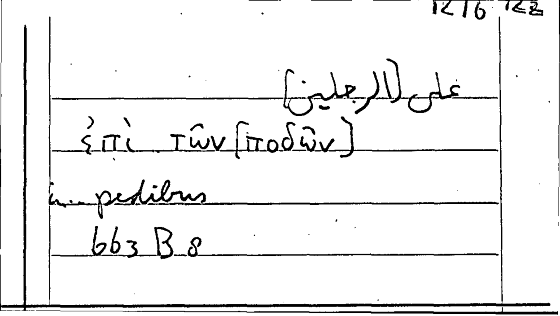 على [الرجلين]
ἐπὶ τῶν [ποδῶν]
in pedibus
663 B 8